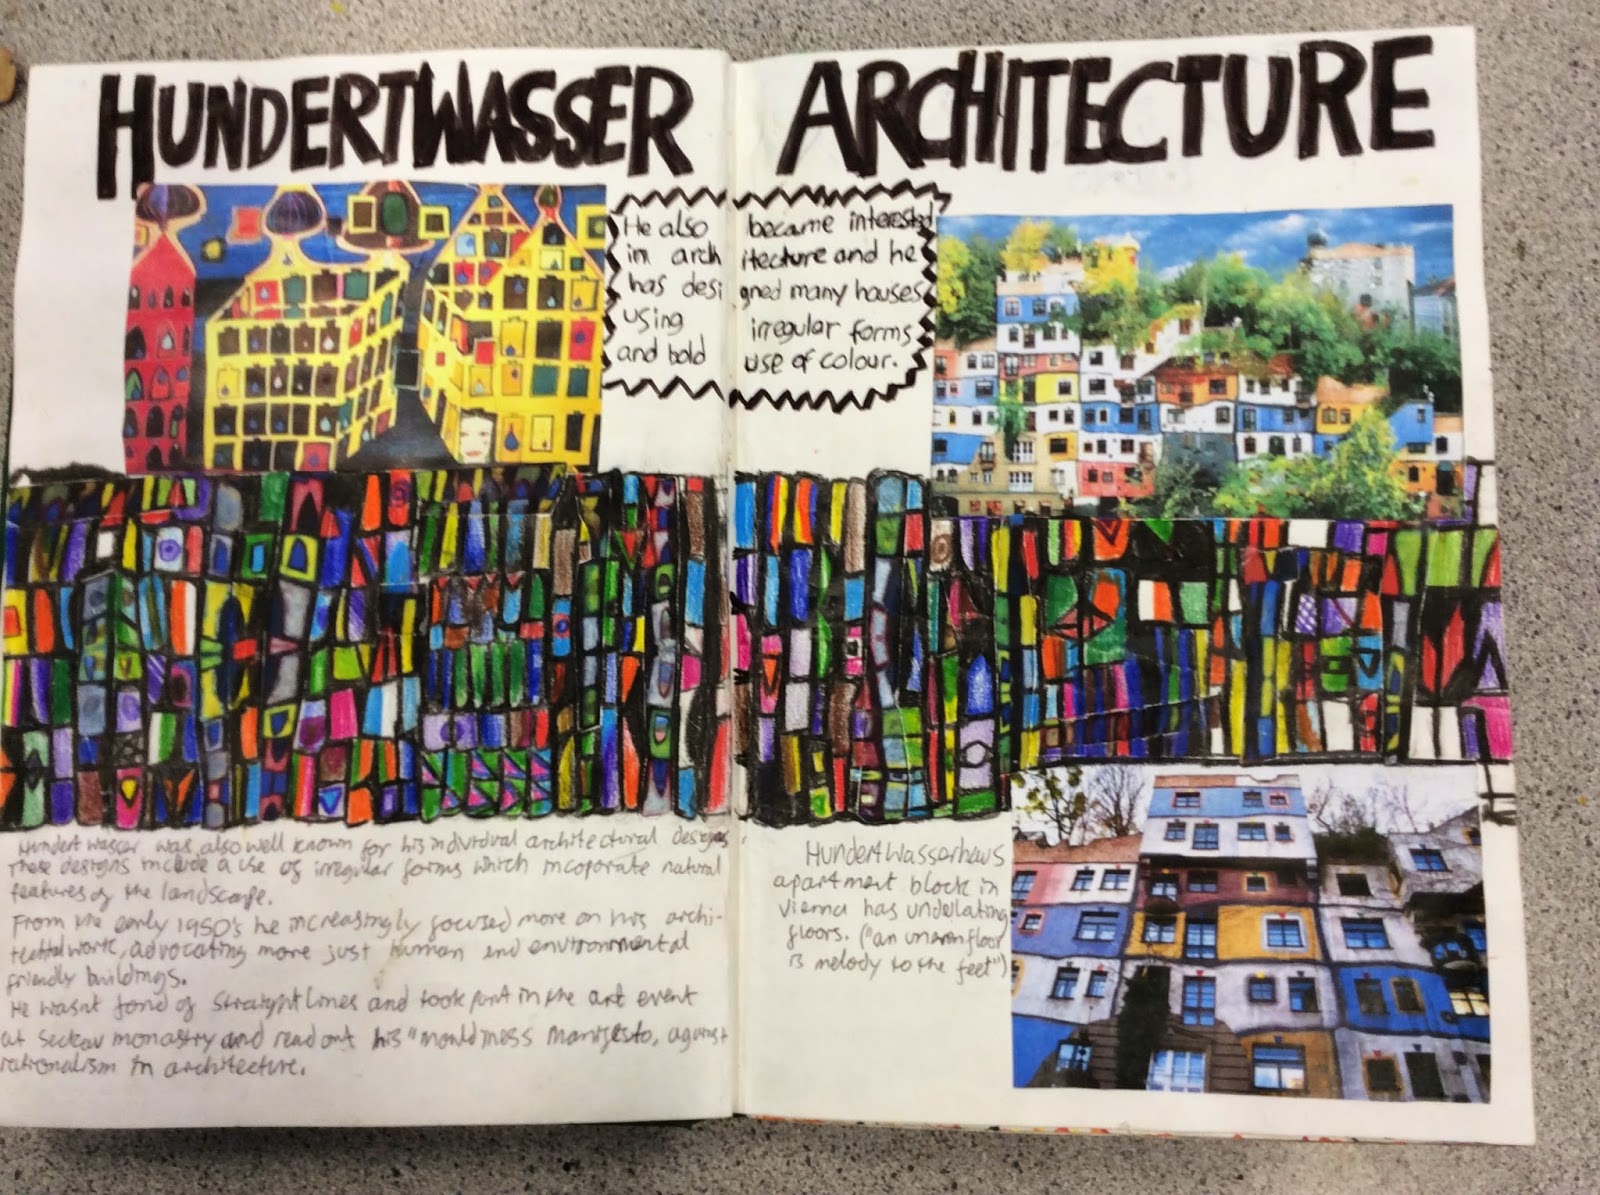 HUNDERTWASSER ARCHITECTURE
He also became interested
in architecture and he
has designed many houses
using irregular forms
and bold use of colour.
Hundertwasser was also well known for his individual architectural designs
These designs include a use of irregular forms which incoporate natural
features of the landscape.
From the early 1950's he increasingly focused more on his archi-
work, advocating more just human and environmental
friendly buildings.
He wasnt fond of straight lines and took part in the art event
at Seckau monastry and read out his "mouldiness manifesto, against
rationalism in architecture.
Hundertwasserhaus
apartment block in
vienna has undulating
floors. ("an uneven floor
is melody to the feet")